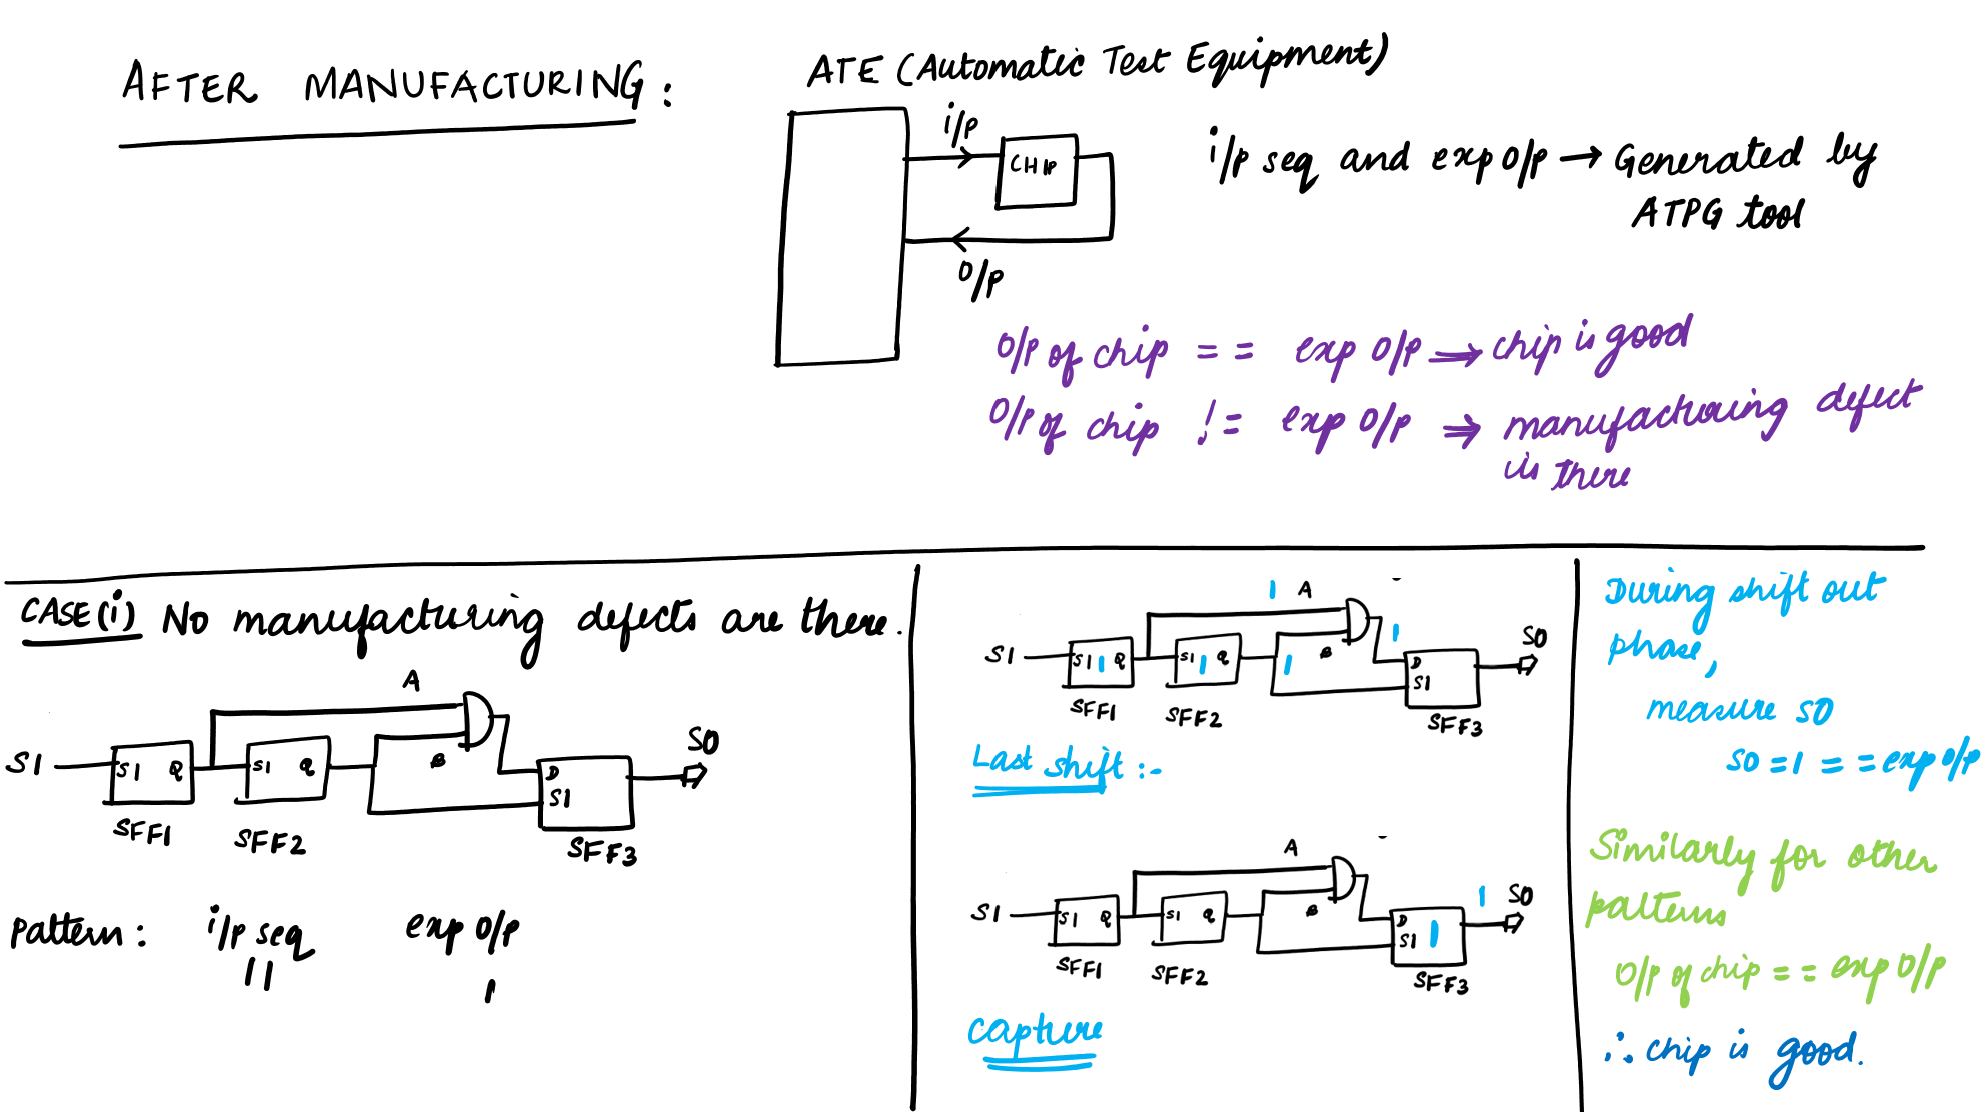 AFTER MANUFACTURING:
ATE (Automatic Test Equipment)
i/p
CHIP
O/P
i/p seq and exp O/p → Generated by
ATPG tool
O/P of chip == exp O/P ⇒ chip is good
O/P of chip != exp O/P ⇒ manufacturing defect
is there
CASE(i) No manufacturing defects are there.
A
B
SI
SI Q
SI Q
D
SI
SO
SFF1
SFF2
SFF3
pattern: i/p seq exp O/P
11 1
1 A
1
SI
SI 1 Q
SI 1 Q
1
B
D
SI
SO
SFF1
SFF2
SFF3
Last shift:-
A
SI
SI Q
SI Q
B
D
SI 1
1 SO
SFF1
SFF2
SFF3
Capture
During shift out
phase,
measure SO
SO = 1 == exp O/P
Similarly for other
patterns
O/P of chip == exp O/P
∴ chip is good.